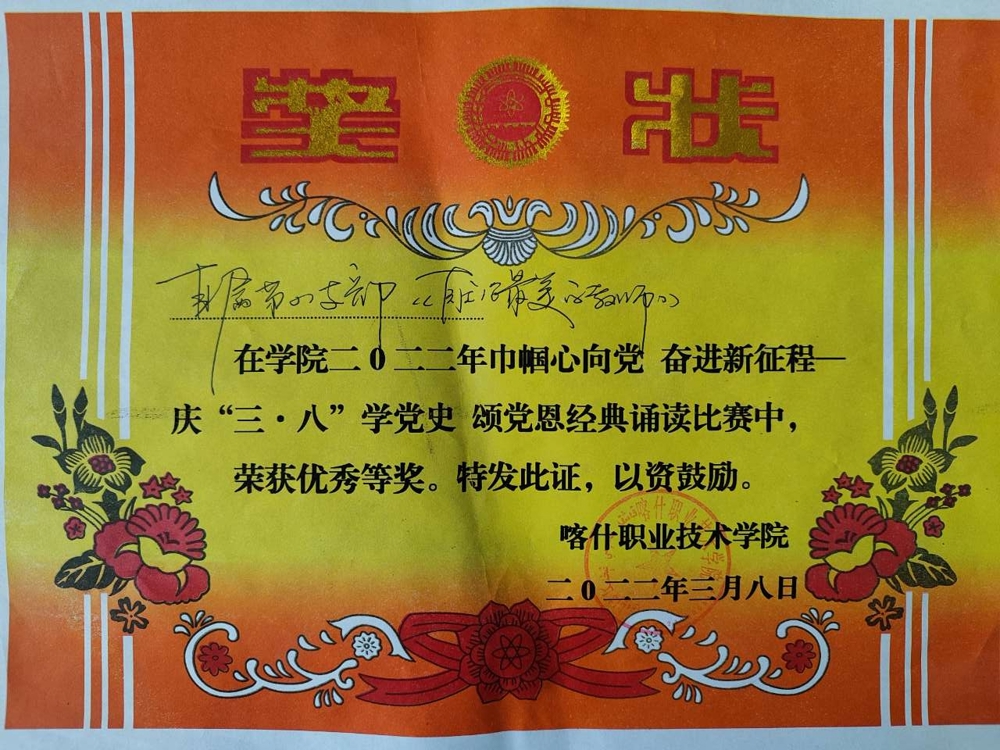 奖状
支部《最美的教师》
在学院二0二二年巾帼心向党 奋进新征程—
庆“三·八”学党史 颂党恩经典诵读比赛中,
荣获优秀等奖。特发此证，以资鼓励。
喀什职业技术学院
二0二二年三月八日